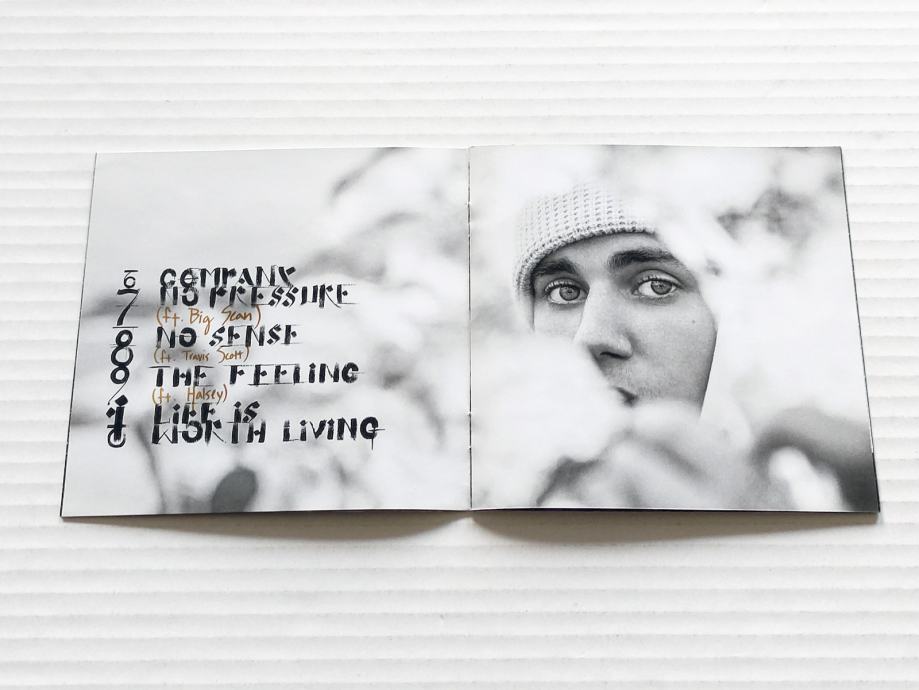 6 COMPANY
7 NO PRESSURE
(ft. Big Sean)
8 NO SENSE
(ft. Travis Scott)
9 THE FEELING
(ft. Halsey)
10 LIFE IS
WORTH LIVING